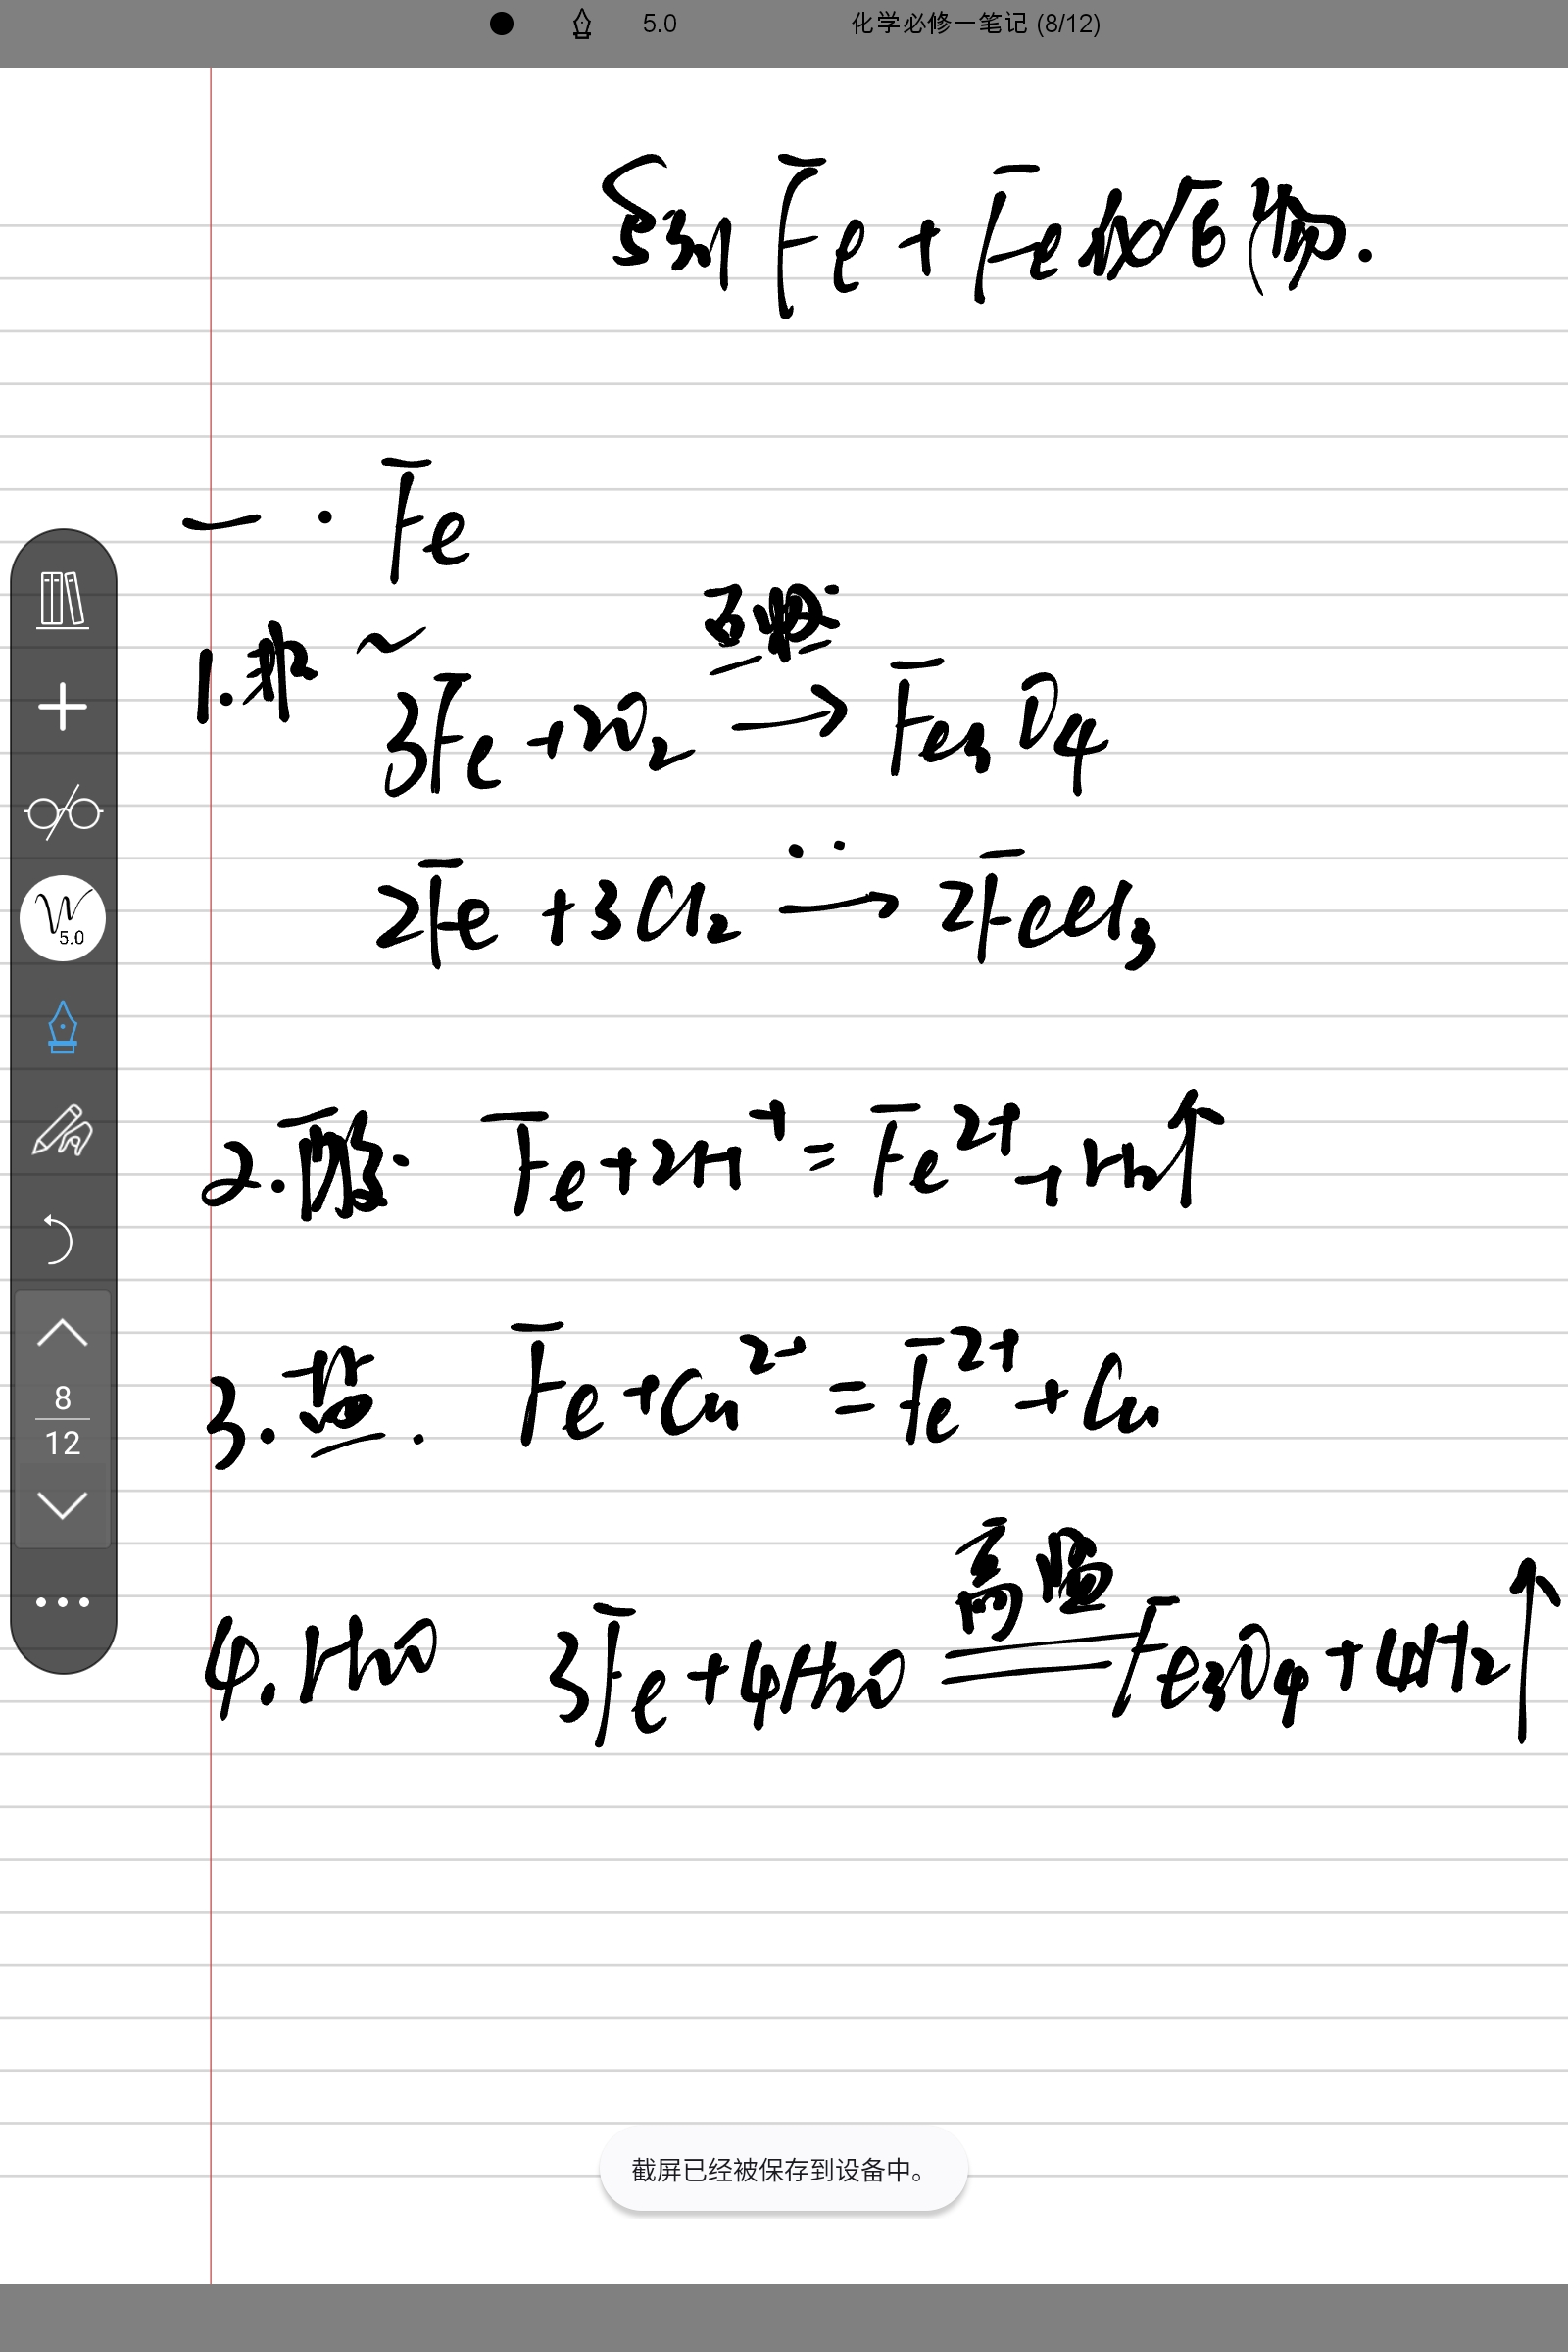 5.0 化学必修一笔记 (8/12)
§3.1 Fe + Fe的化合物.
一. Fe
1.非~
点燃
3Fe + 2O₂ → Fe₃O₄
2Fe + 3Cl₂ → 2FeCl₃
2.酸: Fe + 2H⁺ = Fe²⁺ + H₂↑
3.盐. Fe + Cu²⁺ = Fe²⁺ + Cu
高温
4.H₂O 3Fe + 4H₂O = Fe₃O₄ + 4H₂↑
5.0
8
12
截屏已经被保存到设备中。